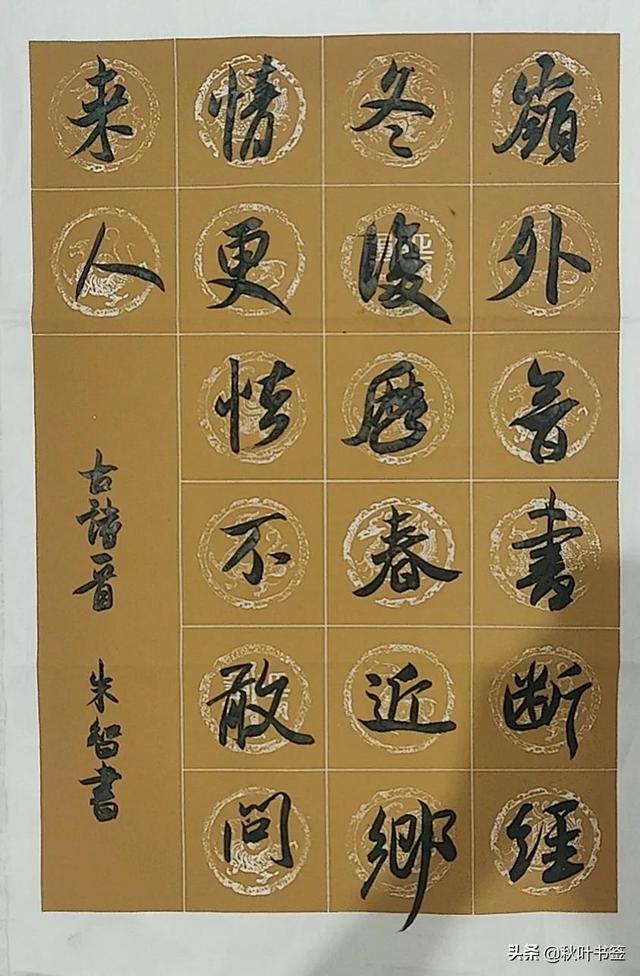 嶺外音書断經
冬復歷春近鄉
情更怯不敢問
来人
古詩一首 朱智書
头条 @秋叶书签